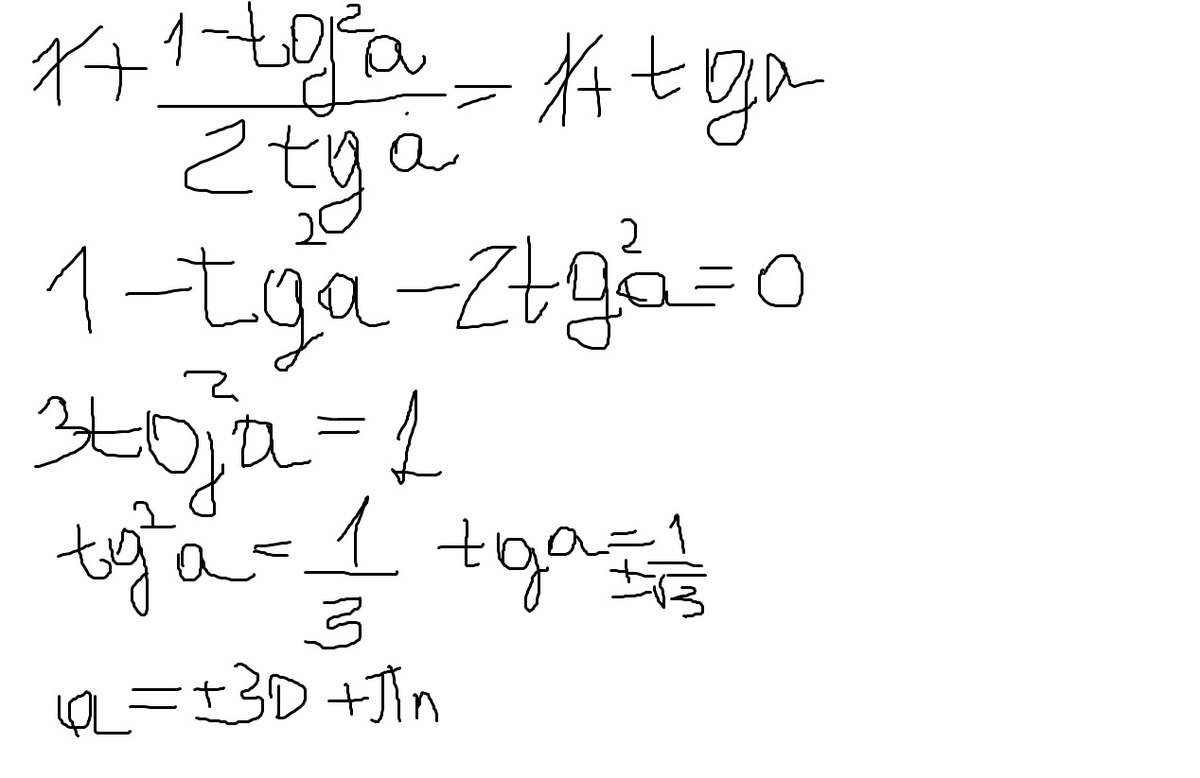 1 + (1 - tg²a) / (2 tg a) = 1 + tg a
1 - tg²a - 2tg²a = 0
3tg²a = 1
tg²a = 1/3 tg a = ± 1/√3
a = ±30 + πn